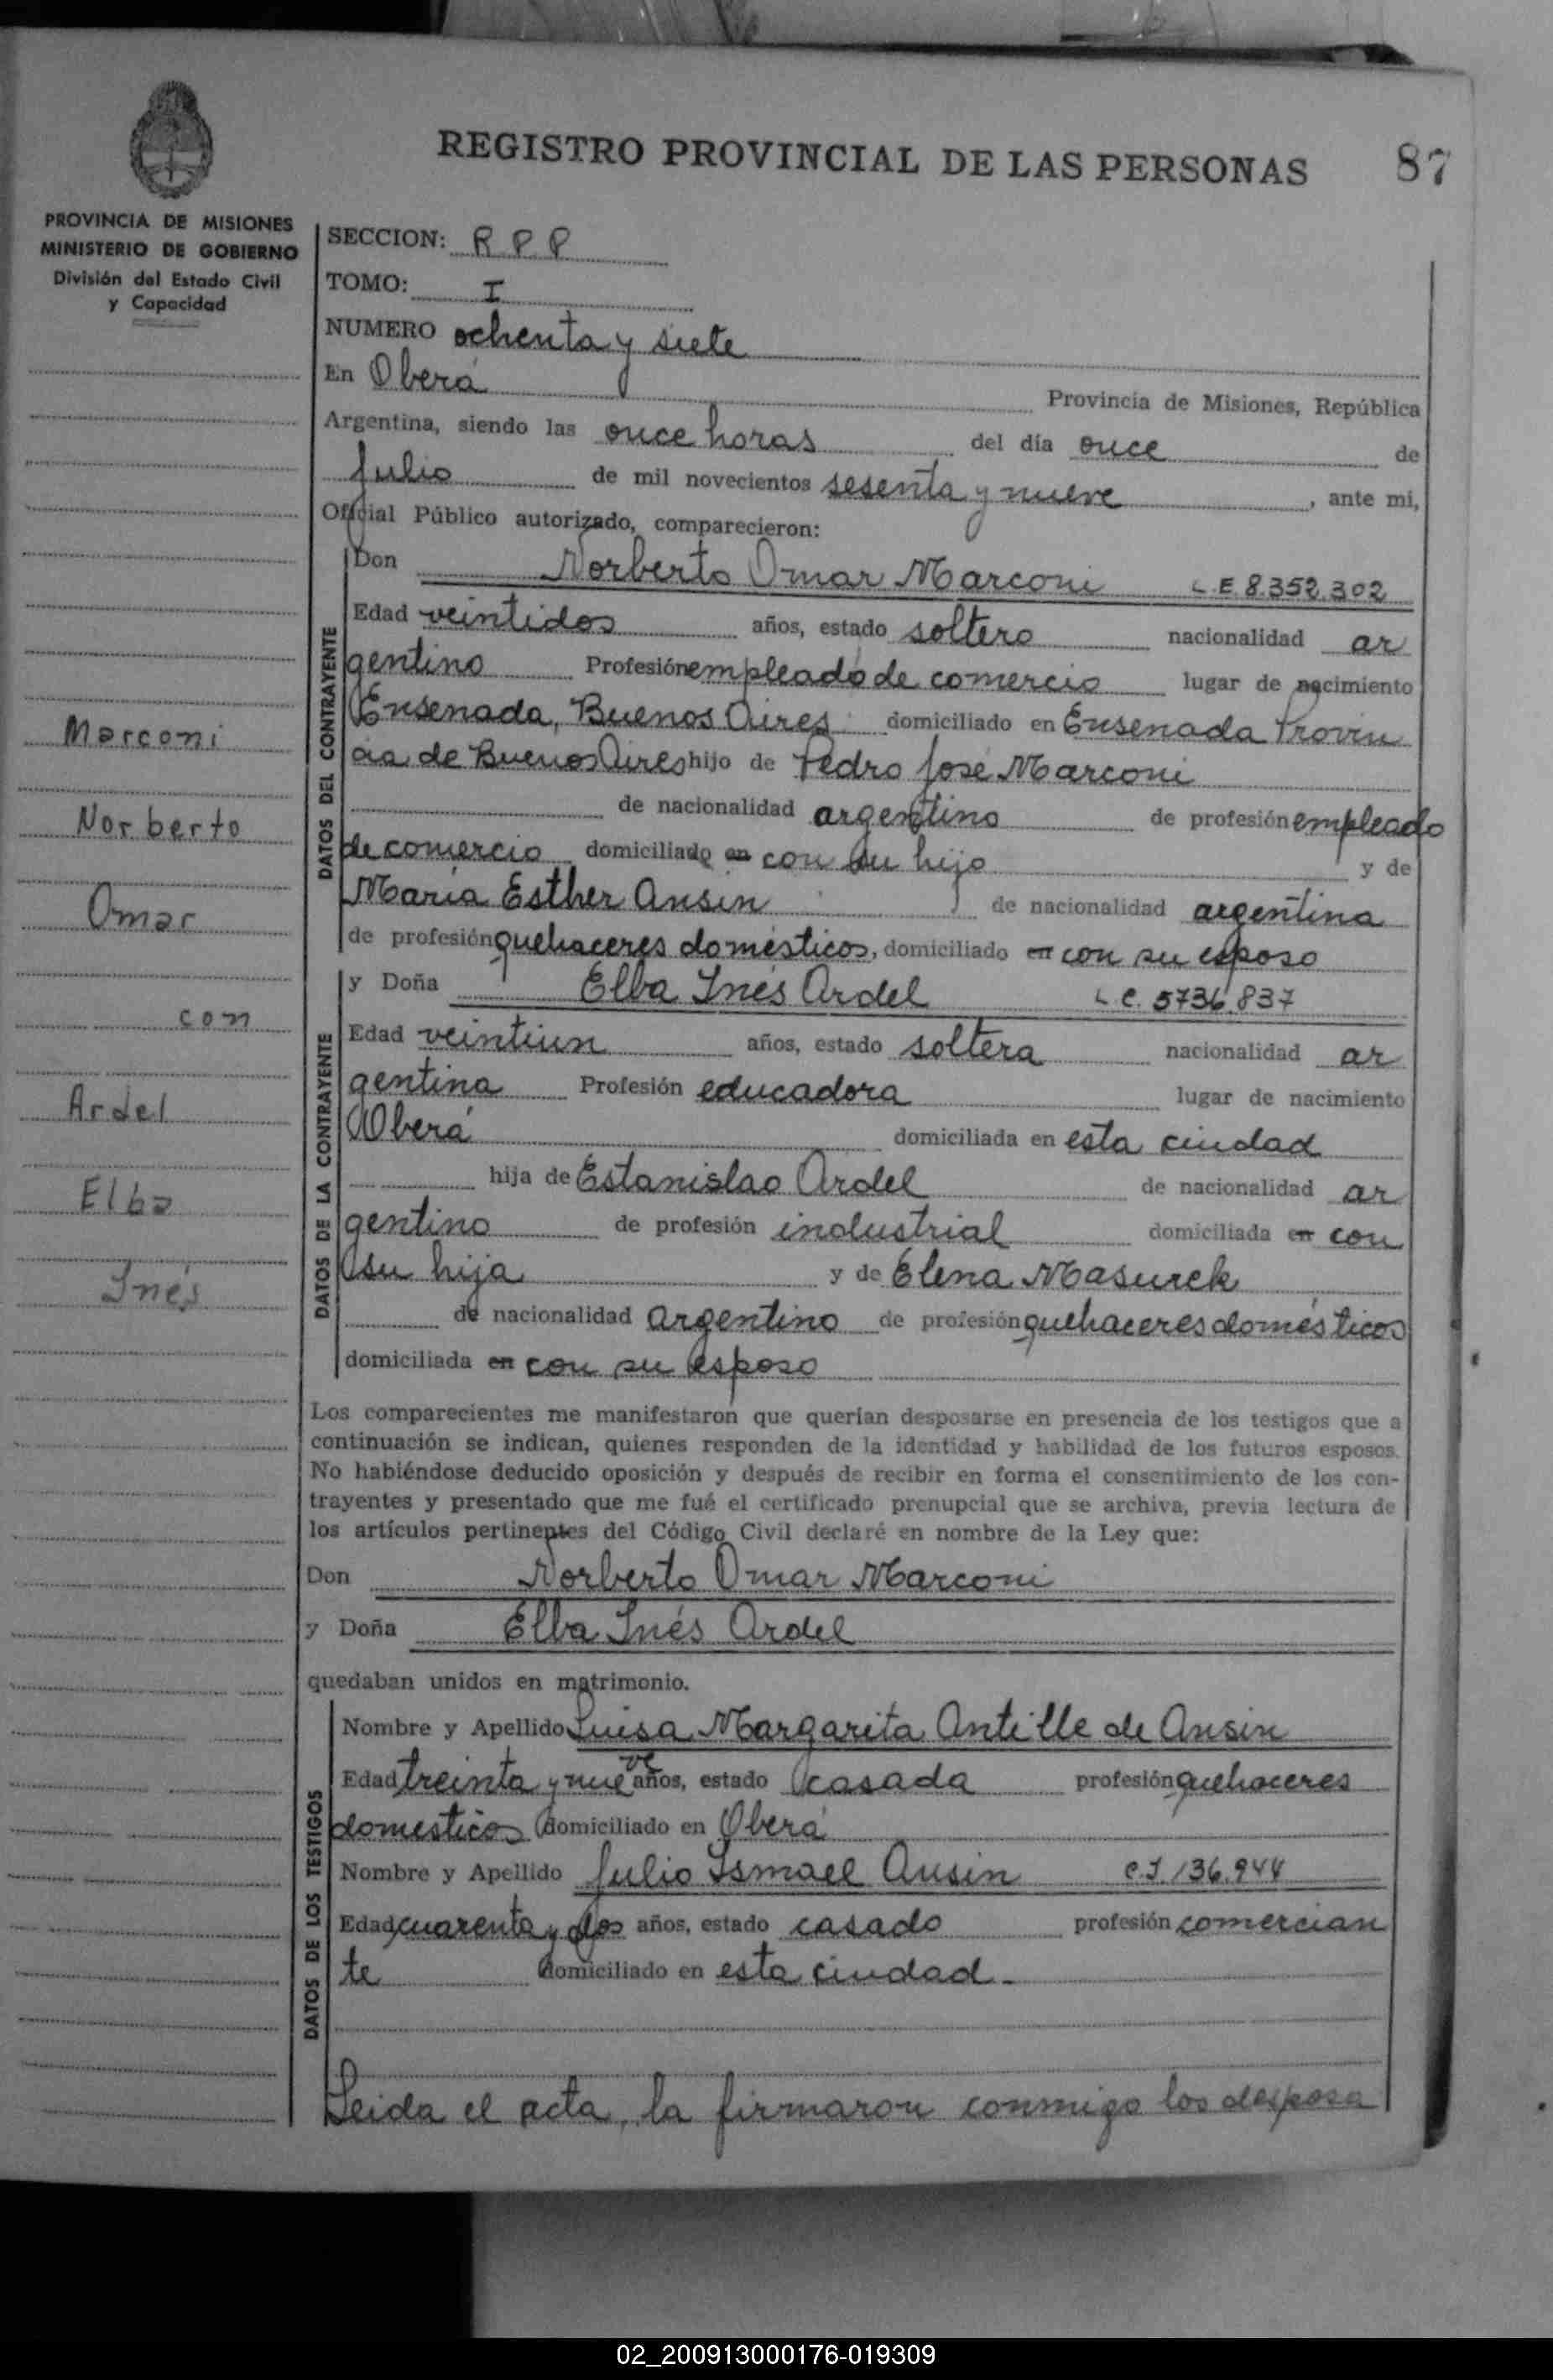 REGISTRO PROVINCIAL DE LAS PERSONAS 87
PROVINCIA DE MISIONES
MINISTERIO DE GOBIERNO
División del Estado Civil
y Capacidad
Marconi
Norberto
Omar
con
Ardel
Elba
Inés
SECCION: R P P
TOMO: I
NUMERO ochenta y siete
En Oberá Provincia de Misiones, República
Argentina, siendo las once horas del día once de
Julio de mil novecientos sesenta y nueve, ante mi,
Oficial Público autorizado, comparecieron:
DATOS DEL CONTRAYENTE
Don Norberto Omar Marconi L.E. 8.352.302
Edad veintidos años, estado soltero nacionalidad ar
gentino Profesión empleado de comercio lugar de nacimiento
Ensenada, Buenos Aires domiciliado en Ensenada Provin
cia de Buenos Aires hijo de Pedro José Marconi
de nacionalidad argentino de profesión empleado
de comercio domiciliado en con su hijo y de
María Esther Ansin de nacionalidad argentina
de profesión quehaceres domésticos, domiciliado en con su esposo
DATOS DE LA CONTRAYENTE
y Doña Elba Inés Ardel L.C. 5736.837
Edad veintiun años, estado soltera nacionalidad ar
gentina Profesión educadora lugar de nacimiento
Oberá domiciliada en esta ciudad
hija de Estanislao Ardel de nacionalidad ar
gentino de profesión industrial domiciliada en con
su hija y de Elena Masurek
de nacionalidad argentino de profesión quehaceres domésticos
domiciliada en con su esposo
Los comparecientes me manifestaron que querían desposarse en presencia de los testigos que a
continuación se indican, quienes responden de la identidad y habilidad de los futuros esposos.
No habiéndose deducido oposición y después de recibir en forma el consentimiento de los con-
trayentes y presentado que me fué el certificado prenupcial que se archiva, previa lectura de
los artículos pertinentes del Código Civil declaré en nombre de la Ley que:
Don Norberto Omar Marconi
y Doña Elba Inés Ardel
quedaban unidos en matrimonio.
DATOS DE LOS TESTIGOS
Nombre y Apellido Luisa Margarita Antille de Ansin
Edad treinta y nueve años, estado casada profesión quehaceres
domesticos domiciliado en Oberá
Nombre y Apellido Julio Ismael Ansin C.I. 136.944
Edad cuarenta y dos años, estado casado profesión comercian
te domiciliado en esta ciudad.
Leida el acta, la firmaron conmigo los desposa
02_200913000176-019309